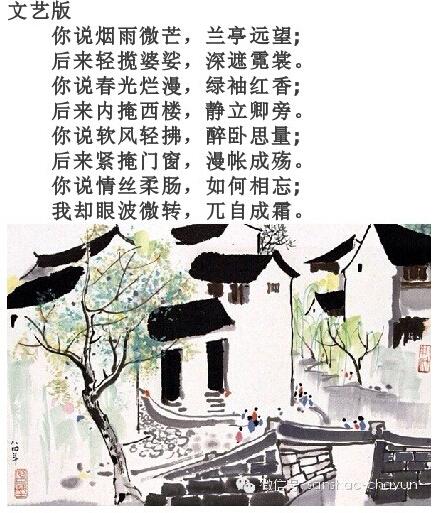 文艺版
你说烟雨微芒，兰亭远望；
后来轻揽婆娑，深遮霓裳。
你说春光烂漫，绿袖红香；
后来内掩西楼，静立卿旁。
你说软风轻拂，醉卧思量；
后来紧掩门窗，漫帐成殇。
你说情丝柔肠，如何相忘；
我却眼波微转，兀自成霜。
微信号: sanshao-chayun